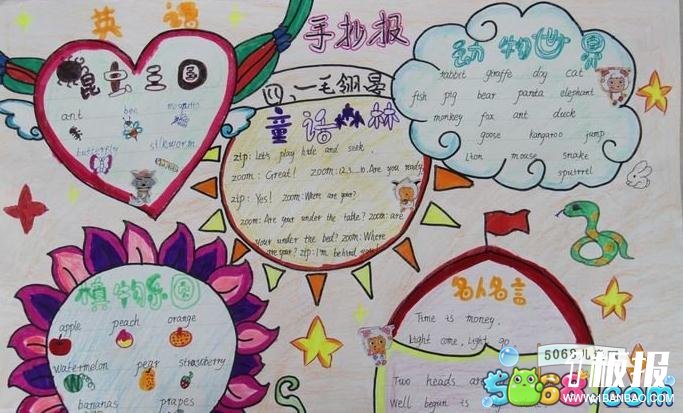 英语
手抄报
昆虫王国
ant
bee
mosquito
butterfly
silkworm
童话森林
zip: Let's play hide and seek.
zoom: Great! zoom: 1,2,3...10. Are you ready
zip: Yes! zoom: Where are you?
zoom: Are your under the table? zoom: are
your under the bed? zoom: Where
are your? zip: I'm behind
动物世界
rabbit giraffe dog cat
fish pig bear panda elephant
monkey fox ant duck
goose kangaroo jump
Lion mouse snake
squirrel
植物乐园
apple peach orange
watermelon pear strawberry
bananas grapes
名人名言
Time is money.
Light come, light go
Two heads are
Well begun is
5068儿
5068.com
板报
WWW.1BANBAO.COM